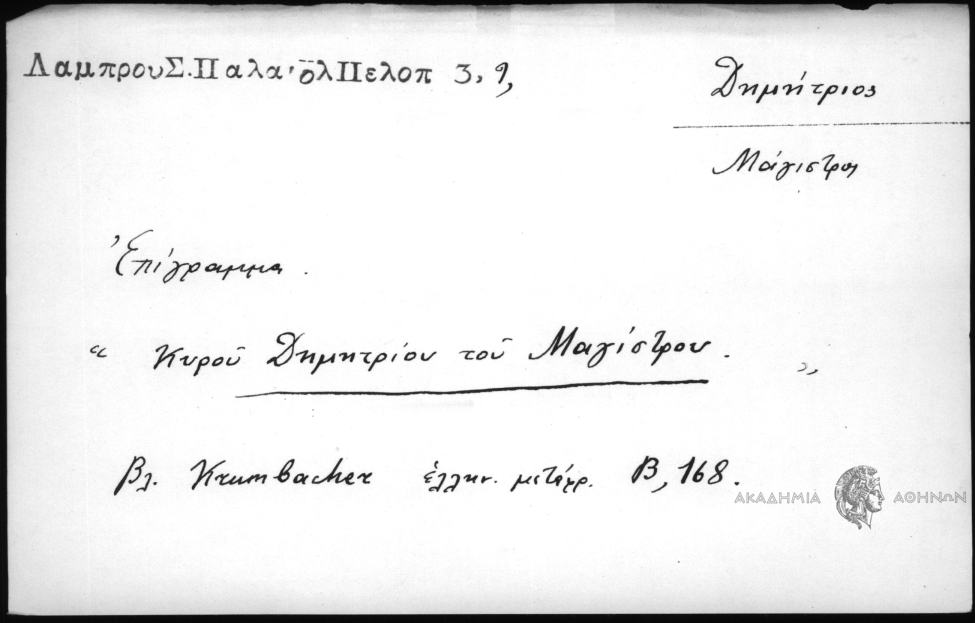 ΛαμπρουΣ.Παλα·ὄλΠελοπ 3, 9,
Δημήτριος
Μάγιστρος
Ἐπίγραμμα.
“ Κυροῦ Δημητρίου τοῦ Μαγίστρου. „
βλ. Krumbacher ἑλλην. μετάφρ. Β, 168.
ΑΚΑΔΗΜΙΑ ΑΘΗΝΩΝ